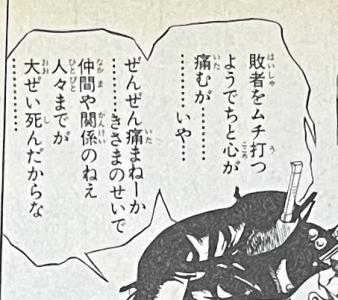 敗者をムチ打つ
ようでちと心が
痛むが…………
…… いや…
ぜんぜん痛まねーか
………きさまのせいで
仲間や関係のねえ
人々までが
大ぜい死んだからな
…………